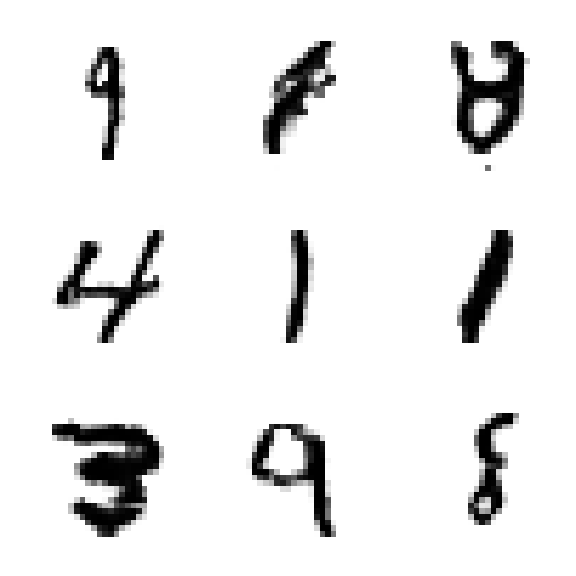 9 8
4 1 1
3 9 8